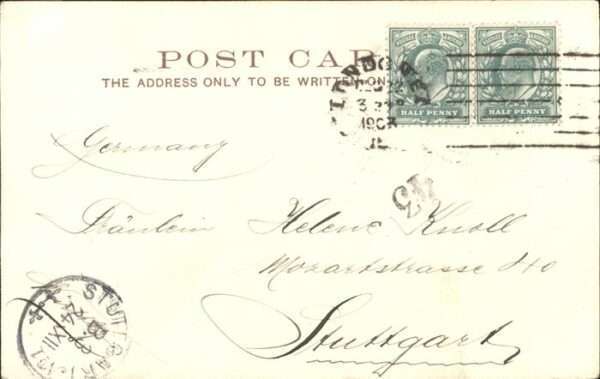 POST CAR
THE ADDRESS ONLY TO BE WRITTEN ON
LONDON
1903
HALF PENNY HALF PENNY
Germany
Fräulein Helene Knoll
Mozartstrasse
Stuttgart
STUTTGART